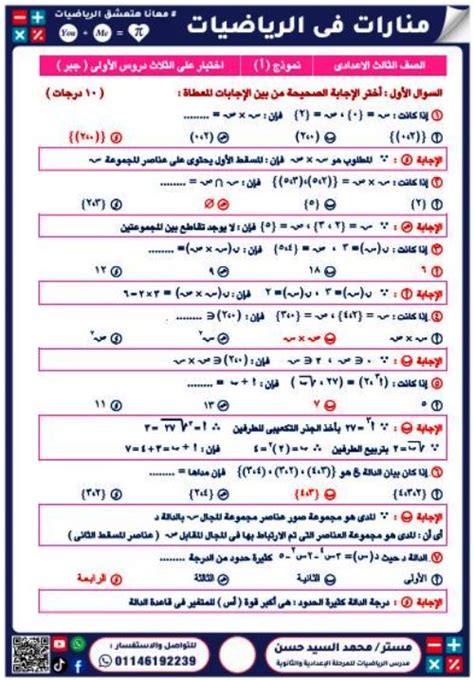 # معانا هتعشق الرياضيات
You + Me = π
منارات فى الرياضيات
الصف الثالث الاعدادى
نموذج (أ)
اختبار على الثلاث دروس الأولى ( جبر )
السوال الأول : أختر الإجابة الصحيحة من بين الإجابات المعطاة :
( ١٠ درجات )
١ إذا كانت : س = {٠} ، ص = {٢} فإن : س × ص = ........
أ {(٢،٠)} ب (٢،٠) ج (٠،٢)
الإجابة المطلوب هو س × ص فإن : المسقط الأول يحتوى على عناصر المجموعة س
٢ إذا كانت : فإن : س ∩ ص = ........
أ {٢} ب {٥} ج ∅ د {٢،٣}
الإجابة س = {٢ ، ٣} ، ص = {٥} فإن : لا يوجد تقاطع بين المجموعتين
٣ إذا كانت : ن(س) = ٣ ، ص = {٤،٥} فإن : ن(س × ص) = ........
أ ٦ ب ١٨ ج ٩ د ١٢
الإجابة أ : ∵ ن(س) = ٣ ، ن(ص) = ٢ فإن : ن(س × ص) = ٣×٢ = ٦
٤ إذا كانت : س = {٢،٤} ، ص = {٠،٣} فإن : (٢،٠) ∋ ........
أ س × ص ب ص × س ج س٢ د ص٢
٥ إذا كانت : فإن : أ + ب = ........
أ ٥ ب ٧ ج ١٣ د ١١
الإجابة ب : ∵ أ٣ = ٢٧ بأخذ الجذر التكعيبى للطرفين ∴ أ = ∛٢٧ = ٣
بتربيع الطرفين ∴ ب = (٢)٢ = ٤ فإن : أ + ب = ٣ + ٤ = ٧
٦ إذا كان بيان الدالة فإن مداها = ........
الإجابة المدى هو مجموعة صور عناصر مجموعة المجال بالدالة د
أى أن : المدى هو مجموعة العناصر التى تم الارتباط بها فى المجال المقابل ص ( عناصر المسقط الثانى )
٧ الدالة د حيث كثيرة حدود من الدرجة ........
أ الأولى ب الثانية ج الثالثة د الرابعة
الإجابة د : درجة الدالة كثيرة الحدود : هى أكبر قوة ( أس ) للمتغير فى قاعدة الدالة
للتواصل والاستفسار :
01146192239
مستر/ محمد السيد حسن
مدرس الرياضيات للمرحلة الإعدادية والثانوية